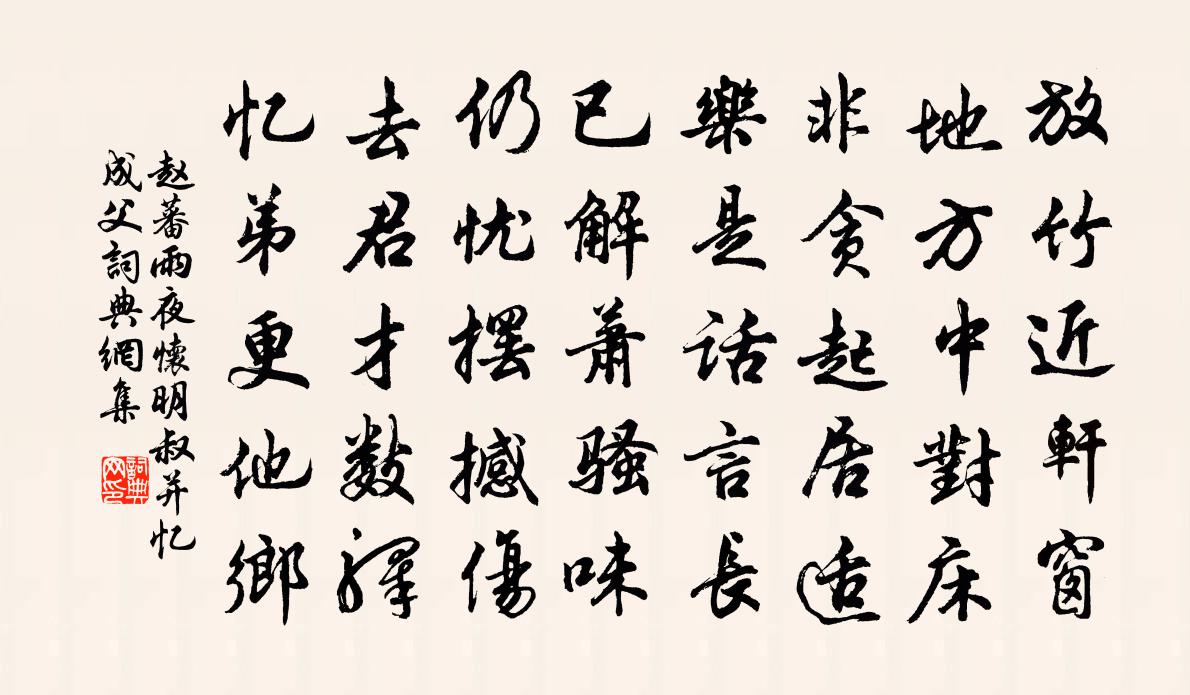 放竹近軒窗
地方中對床
非贪起居适
樂是话言長
已解萧骚味
仍忧摆撼傷
去君才数驛
忆弟更他鄉
赵蕃雨夜懷明叔并忆
成父詞典網集
詞典网印